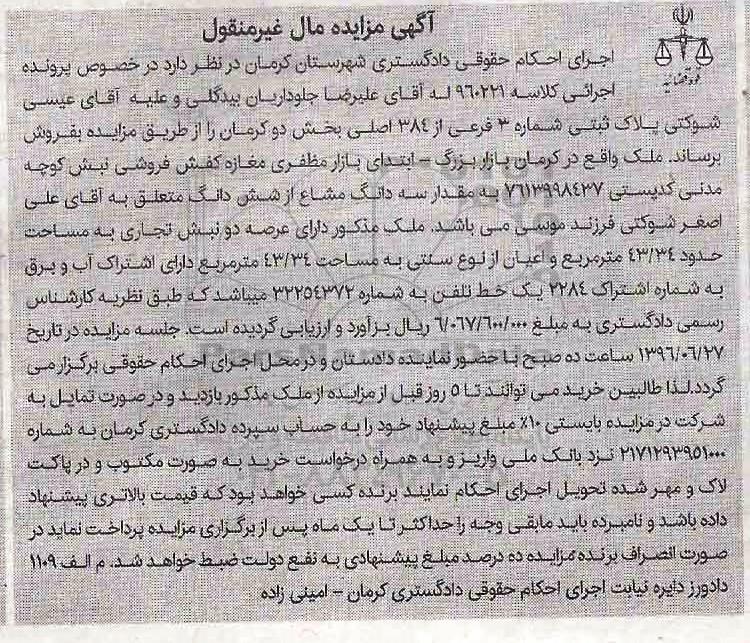 آگهی مزایده مال غیرمنقول
قوه قضائیه
اجرای احکام حقوقی دادگستری شهرستان کرمان در نظر دارد در خصوص پرونده
اجرائی کلاسه ۹۶۰۲۲۱ له آقای علیرضا جلوداریان بیدگلی و علیه آقای عیسی
شوکتی پلاک ثبتی شماره ۳ فرعی از ۳۸۴ اصلی بخش دو کرمان را از طریق مزایده بفروش
برساند. ملک واقع در کرمان بازار بزرگ – ابتدای بازار مظفری مغازه کفش فروشی نبش کوچه
مدنی کدپستی ۷۶۱۳۹۹۸۴۳۷ به مقدار سه دانگ مشاع از شش دانگ متعلق به آقای علی
اصغر شوکتی فرزند موسی می باشد. ملک مذکور دارای عرصه دو نبش تجاری به مساحت
حدود ۴۳/۳۴ مترمربع و اعیان از نوع سنتی به مساحت ۴۳/۳۴ مترمربع دارای اشتراک آب و برق
به شماره اشتراک ۲۲۸۴ یک خط تلفن به شماره ۳۲۲۵۴۳۷۲ میباشد که طبق نظریه کارشناس
رسمی دادگستری به مبلغ ۶/۰۶۷/۶۰۰/۰۰۰ ریال برآورد و ارزیابی گردیده است. جلسه مزایده در تاریخ
۱۳۹۶/۰۶/۲۷ ساعت ده صبح با حضور نماینده دادستان و در محل اجرای احکام حقوقی برگزار می
گردد.لذا طالبین خرید می توانند تا ۵ روز قبل از مزایده از ملک مذکور بازدید و در صورت تمایل به
شرکت در مزایده بایستی ۱۰٪ مبلغ پیشنهاد خود را به حساب سپرده دادگستری کرمان به شماره
۲۱۷۱۲۹۳۹۵۱۰۰۰ نزد بانک ملی واریز و به همراه درخواست خرید به صورت مکتوب و در پاکت
لاک و مهر شده تحویل اجرای احکام نمایند برنده کسی خواهد بود که قیمت بالاتری پیشنهاد
داده باشد و نامبرده باید مابقی وجه را حداکثر تا یک ماه پس از برگزاری مزایده پرداخت نماید در
صورت انصراف برنده مزایده ده درصد مبلغ پیشنهادی به نفع دولت ضبط خواهد شد. م الف ۱۱۰۹
دادورز دایره نیابت اجرای احکام حقوقی دادگستری کرمان – امینی زاده